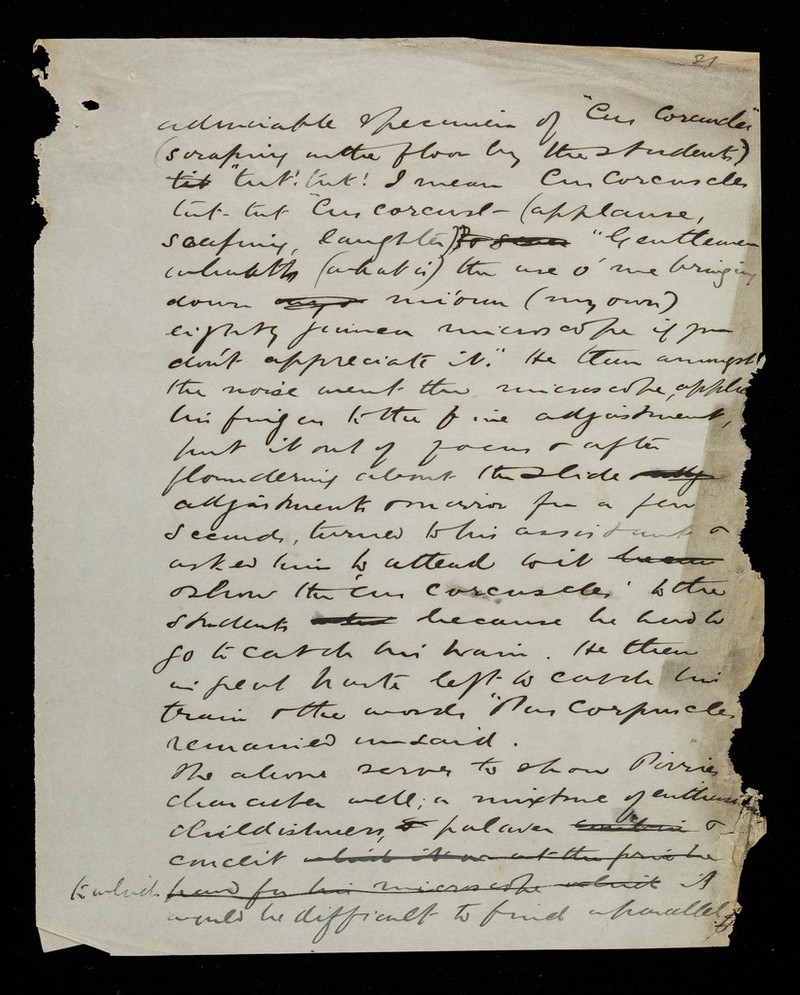 21
admirable specimen of "Cus Corcuscles"
(scraping on the floor by the students)
tit "tut! tut! I mean Cus Corcuscles
tut-tut Cus corcusl- (applause,
scraping, laughter) "Gentlemen
whaatts (what is) the use o' me bringing
down my o mi'oun (my own)
eighty guinea microscope if you
don't appreciate it." He then amongst
the noise went the microscope, applied
his finger to the fine adjustment,
put it out of focus & after
floundering about the slide
adjustments & mirror for a few
seconds, turned to his assistant &
asked him to attend to it
& show the 'cus corcuscles' to the
students because he had to
go to catch his train. He then
in great haste left to catch his
train & the words "Pus Corpuscles
remained unsaid.
The above serves to show Pirries
character well; a mixture of enthusi
childishness, & palaver &
conceit which it was at the price he
to which paid for his microscope which it
would be difficult to find a parallel